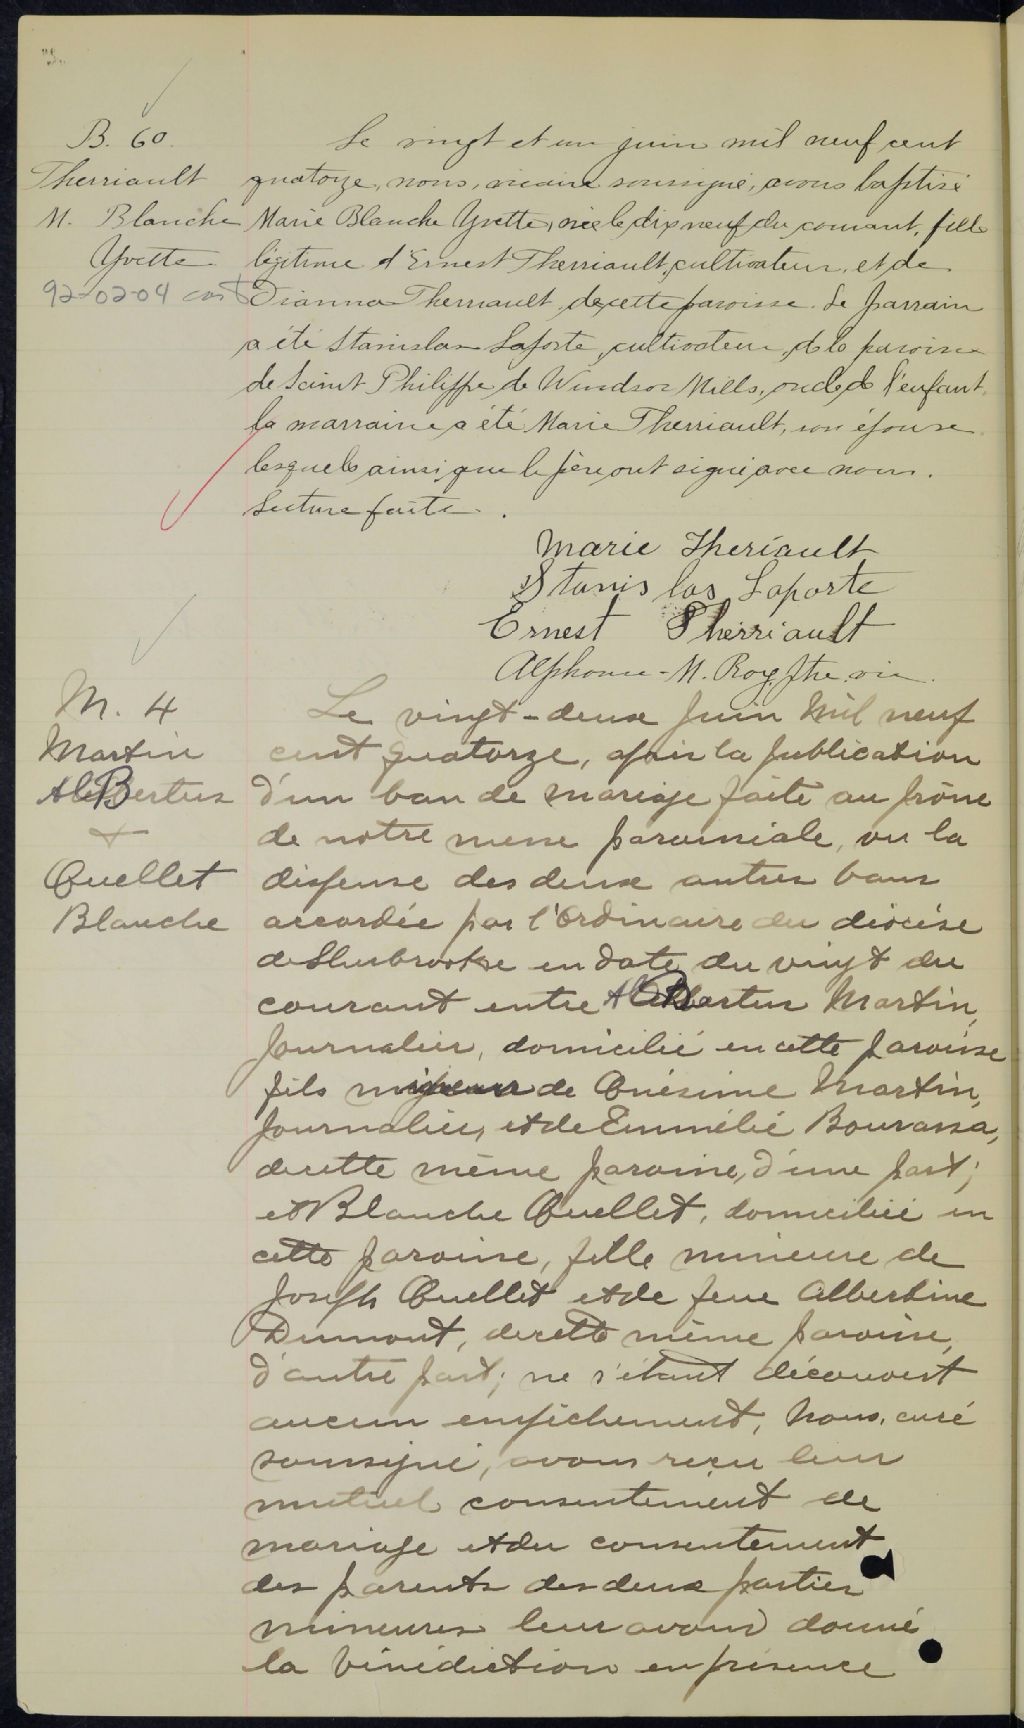 B. 60.
Therriault
M. Blanche
Yvette
92-02-04
Le vingt et un juin mil neuf cent
quatorze, nous, vicaire soussigné, avons baptisé
Marie Blanche Yvette, née le dix neuf du courant, fille
légitime d'Ernest Therriault, cultivateur, et de
Dianna Therriault, de cette paroisse. Le parrain
a été Stanislas Laporte, cultivateur, de la paroisse
de Saint Philippe de Windsor Mills, oncle de l'enfant,
la marraine a été Marie Therriault, son épouse
lesquels ainsi que le père ont signé avec nous.
Lecture faite.
Marie Theriault
Stanislas Laporte
Ernest Therriault
Alphonse-M. Roy, Ptre vic.
M. 4
Martin
Albertus
+
Ouellet
Blanche
Le vingt-deux Juin Mil neuf
cent quatorze, après la publication
d'un ban de mariage faite au prône
de notre messe paroissiale, vu la
dispense des deux autres bans
accordée par l'Ordinaire du diocèse
de Sherbrooke en date du vingt du
courant entre Albertus Martin,
Journalier, domicilié en cette paroisse
fils mineur de Onésime Martin,
Journalier, et de Emmélie Bourassa,
de cette même paroisse, d'une part;
et Blanche Ouellet, domiciliée en
cette paroisse, fille mineure de
Joseph Ouellet et de feue Albertine
Dumont, de cette même paroisse,
d'autre part; ne s'étant découvert
aucun empêchement, Nous, curé
soussigné, avons reçu leur
mutuel consentement de
mariage et du consentement
des parents des deux parties
mineures leur avons donné
la bénédiction en présence